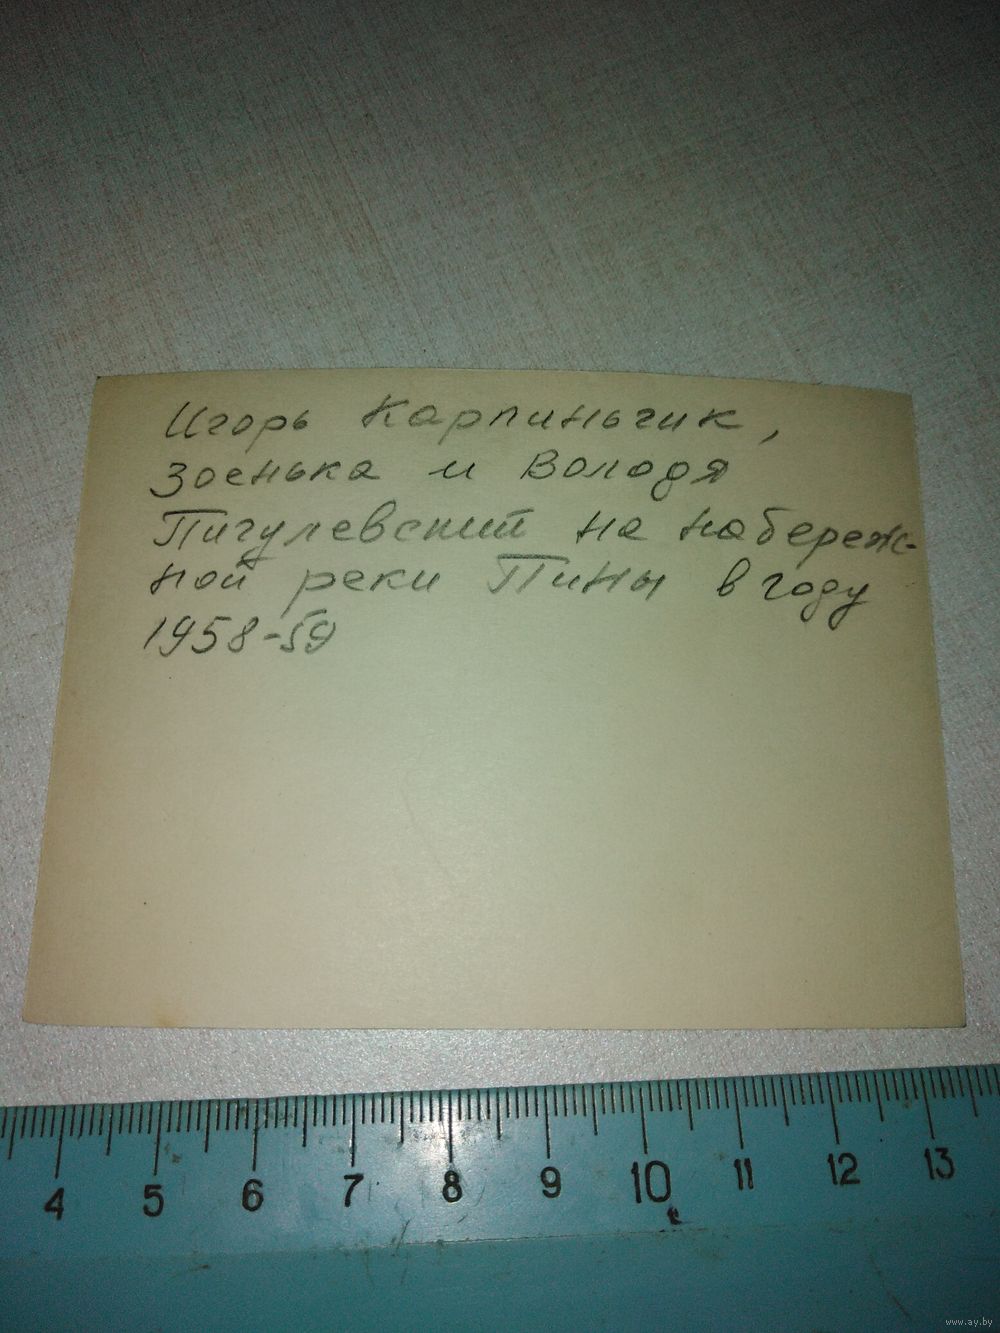 Игорь Карпиньчик,
Зоенька и Володя
Пигулевский на набереж-
ной реки Пины в году
1958-59
4 5 6 7 8 9 10 11 12 13
www.ay.by